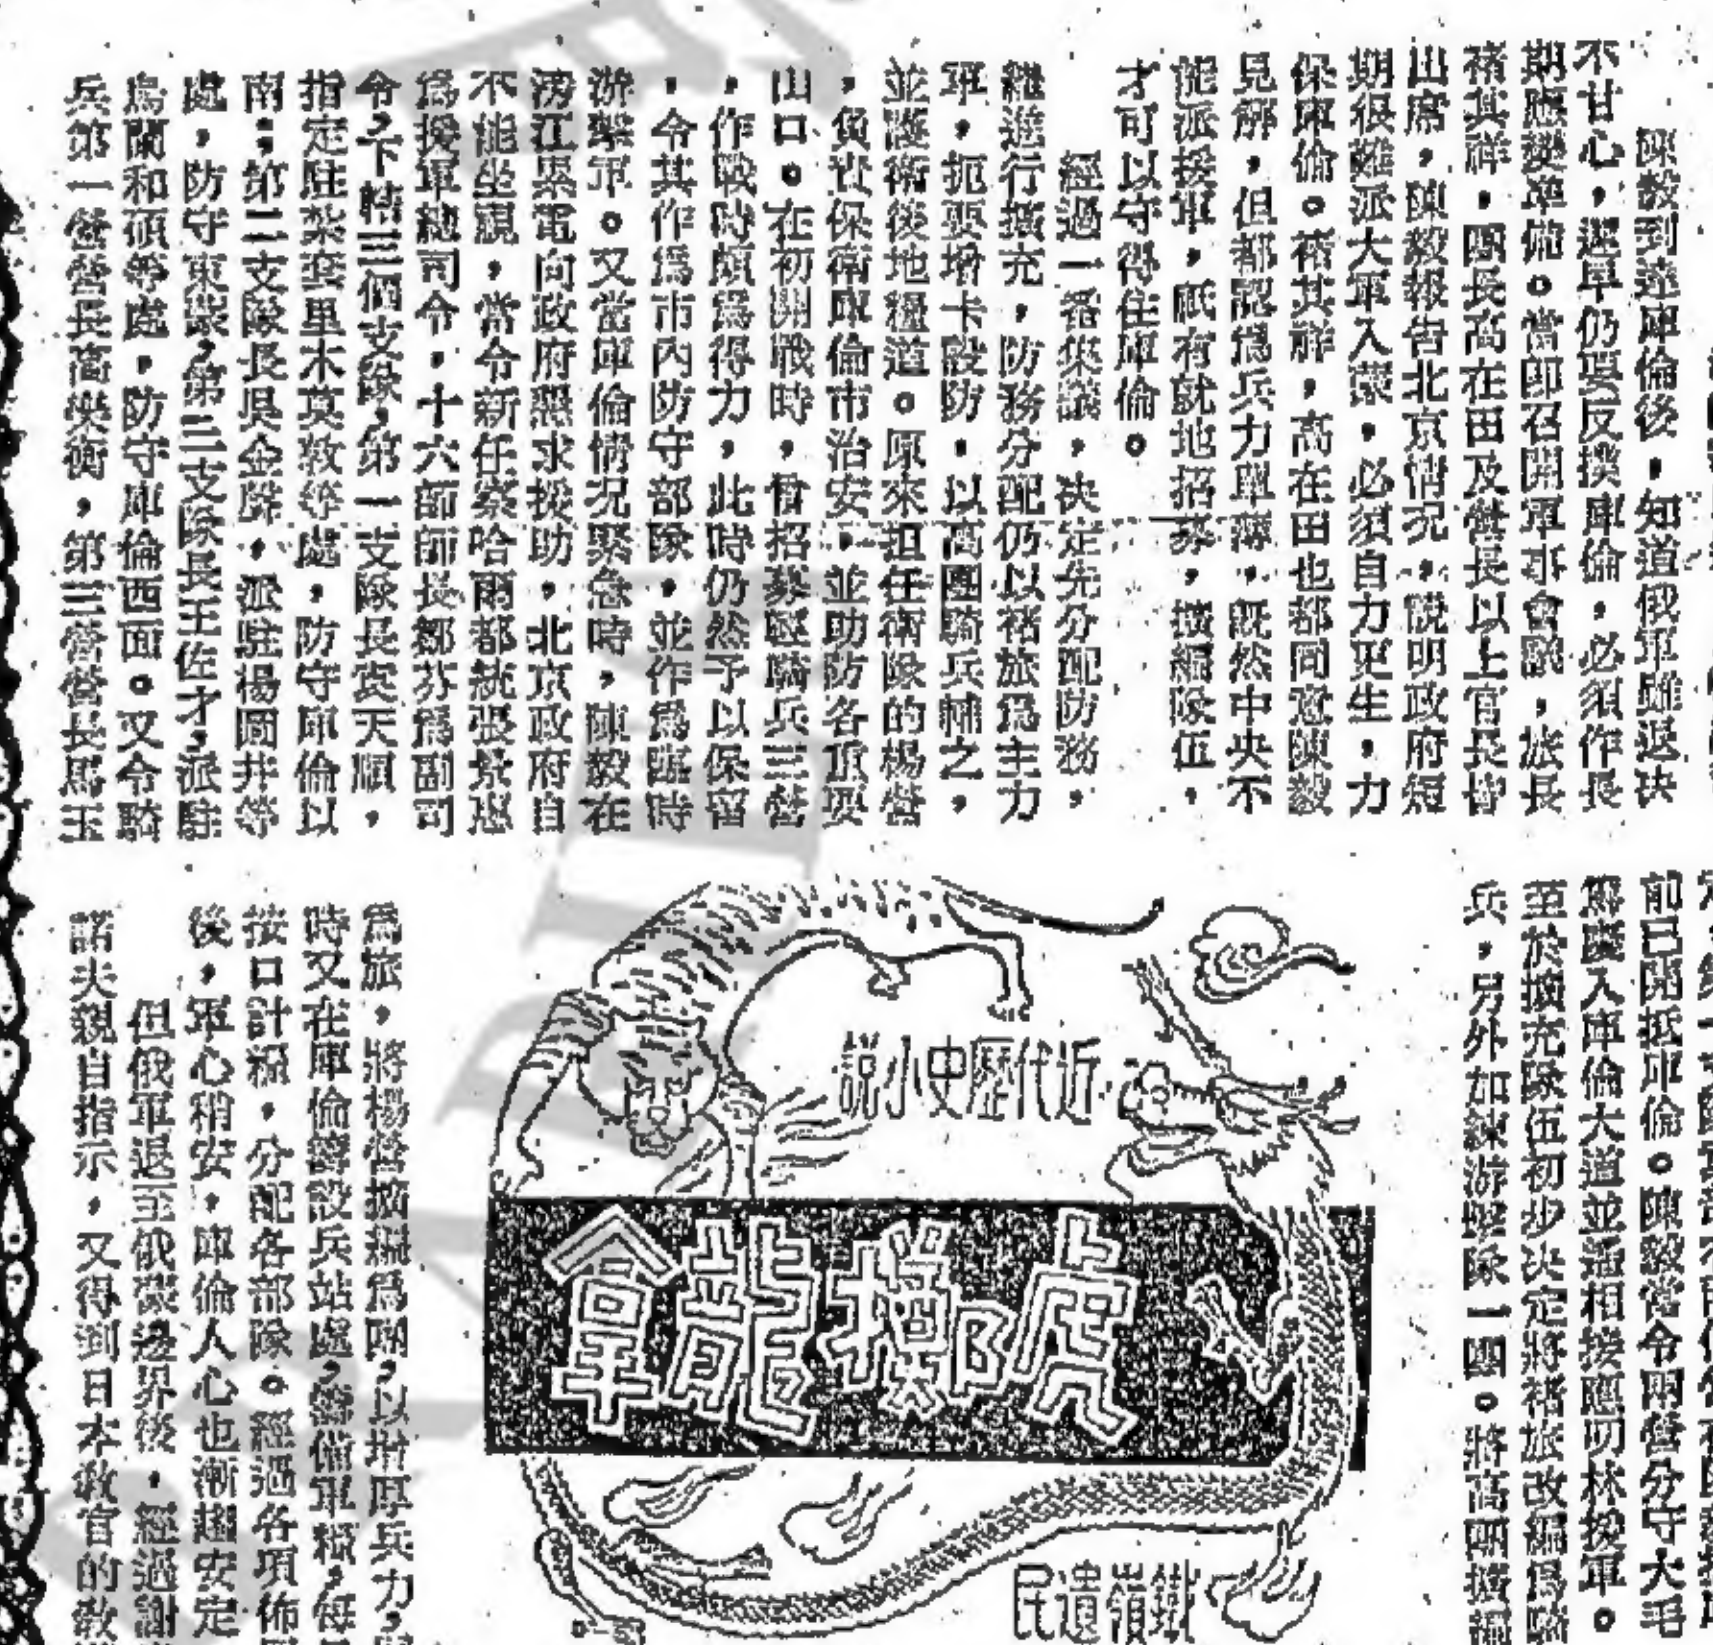 陳毅到達庫倫後，知道俄軍雖退決
不甘心，遲早仍要反撲庫倫，必須作長
期應變準備。當即召開軍事會議，旅長
褚其祥，團長高在田及營長以上官長皆
出席，陳毅報告北京情况，說明政府短
期很難派大軍入蒙，必須自力更生，力
保庫倫。褚其祥，高在田也都同意陳毅
見解，但都認爲兵力單薄，既然中央不
能派援軍，祇有就地招募，擴編隊伍，
才可以守得住庫倫。
經過一番集議，决定先分配防務，
繼進行擴充，防務分配仍以褚旅爲主力
軍，扼要增卡設防，以高團騎兵輔之，
並護衛後地糧道。原來担任衛隊的楊營
，負責保衛庫倫市治安，並助防各重要
山口。在初開戰時，曾招募輕騎兵三營
，作戰時頗爲得力，此時仍然予以保留
，令其作爲市內防守部隊，並作爲臨時
游擊軍。又當庫倫情况緊急時，陳毅在
滂江累電向政府懇求援助，北京政府自
不能坐視，當令新任察哈爾都統張景惠
爲援軍總司令，十六師師長鄒芬爲副司
令，下轄三個支隊，第一支隊長袁天順，
指定駐紮套里木莫敦等處，防守庫倫以
南；第二支隊長吳金聲，派駐楊圖井等
處，防守東蒙，第三支隊長王佐才，派駐
烏蘭和碩等處，防守庫倫西面。又令騎
兵第一營營長高樂衡，第三營營長馬玉
前已開抵庫倫。陳毅當令兩營分守大毛
入庫倫大道並遙相接應叨林援軍。
至於擴充隊伍初步决定將褚旅改編爲騎
兵，另外加練游擊隊一團。將高團擴編
近代歷史小說
虎擲龍拿
鐵嶺遺民
爲旅，將楊營擴編爲團，以增厚兵力，
時又在庫倫籌設兵站處，籌備軍糧，每
按口計糧，分配各部隊。經過各項佈
後，軍心稍安，庫倫人心也漸趨安定
但俄軍退至俄蒙邊界後，經過謝
諾夫親自指示，又得到日本教官的教